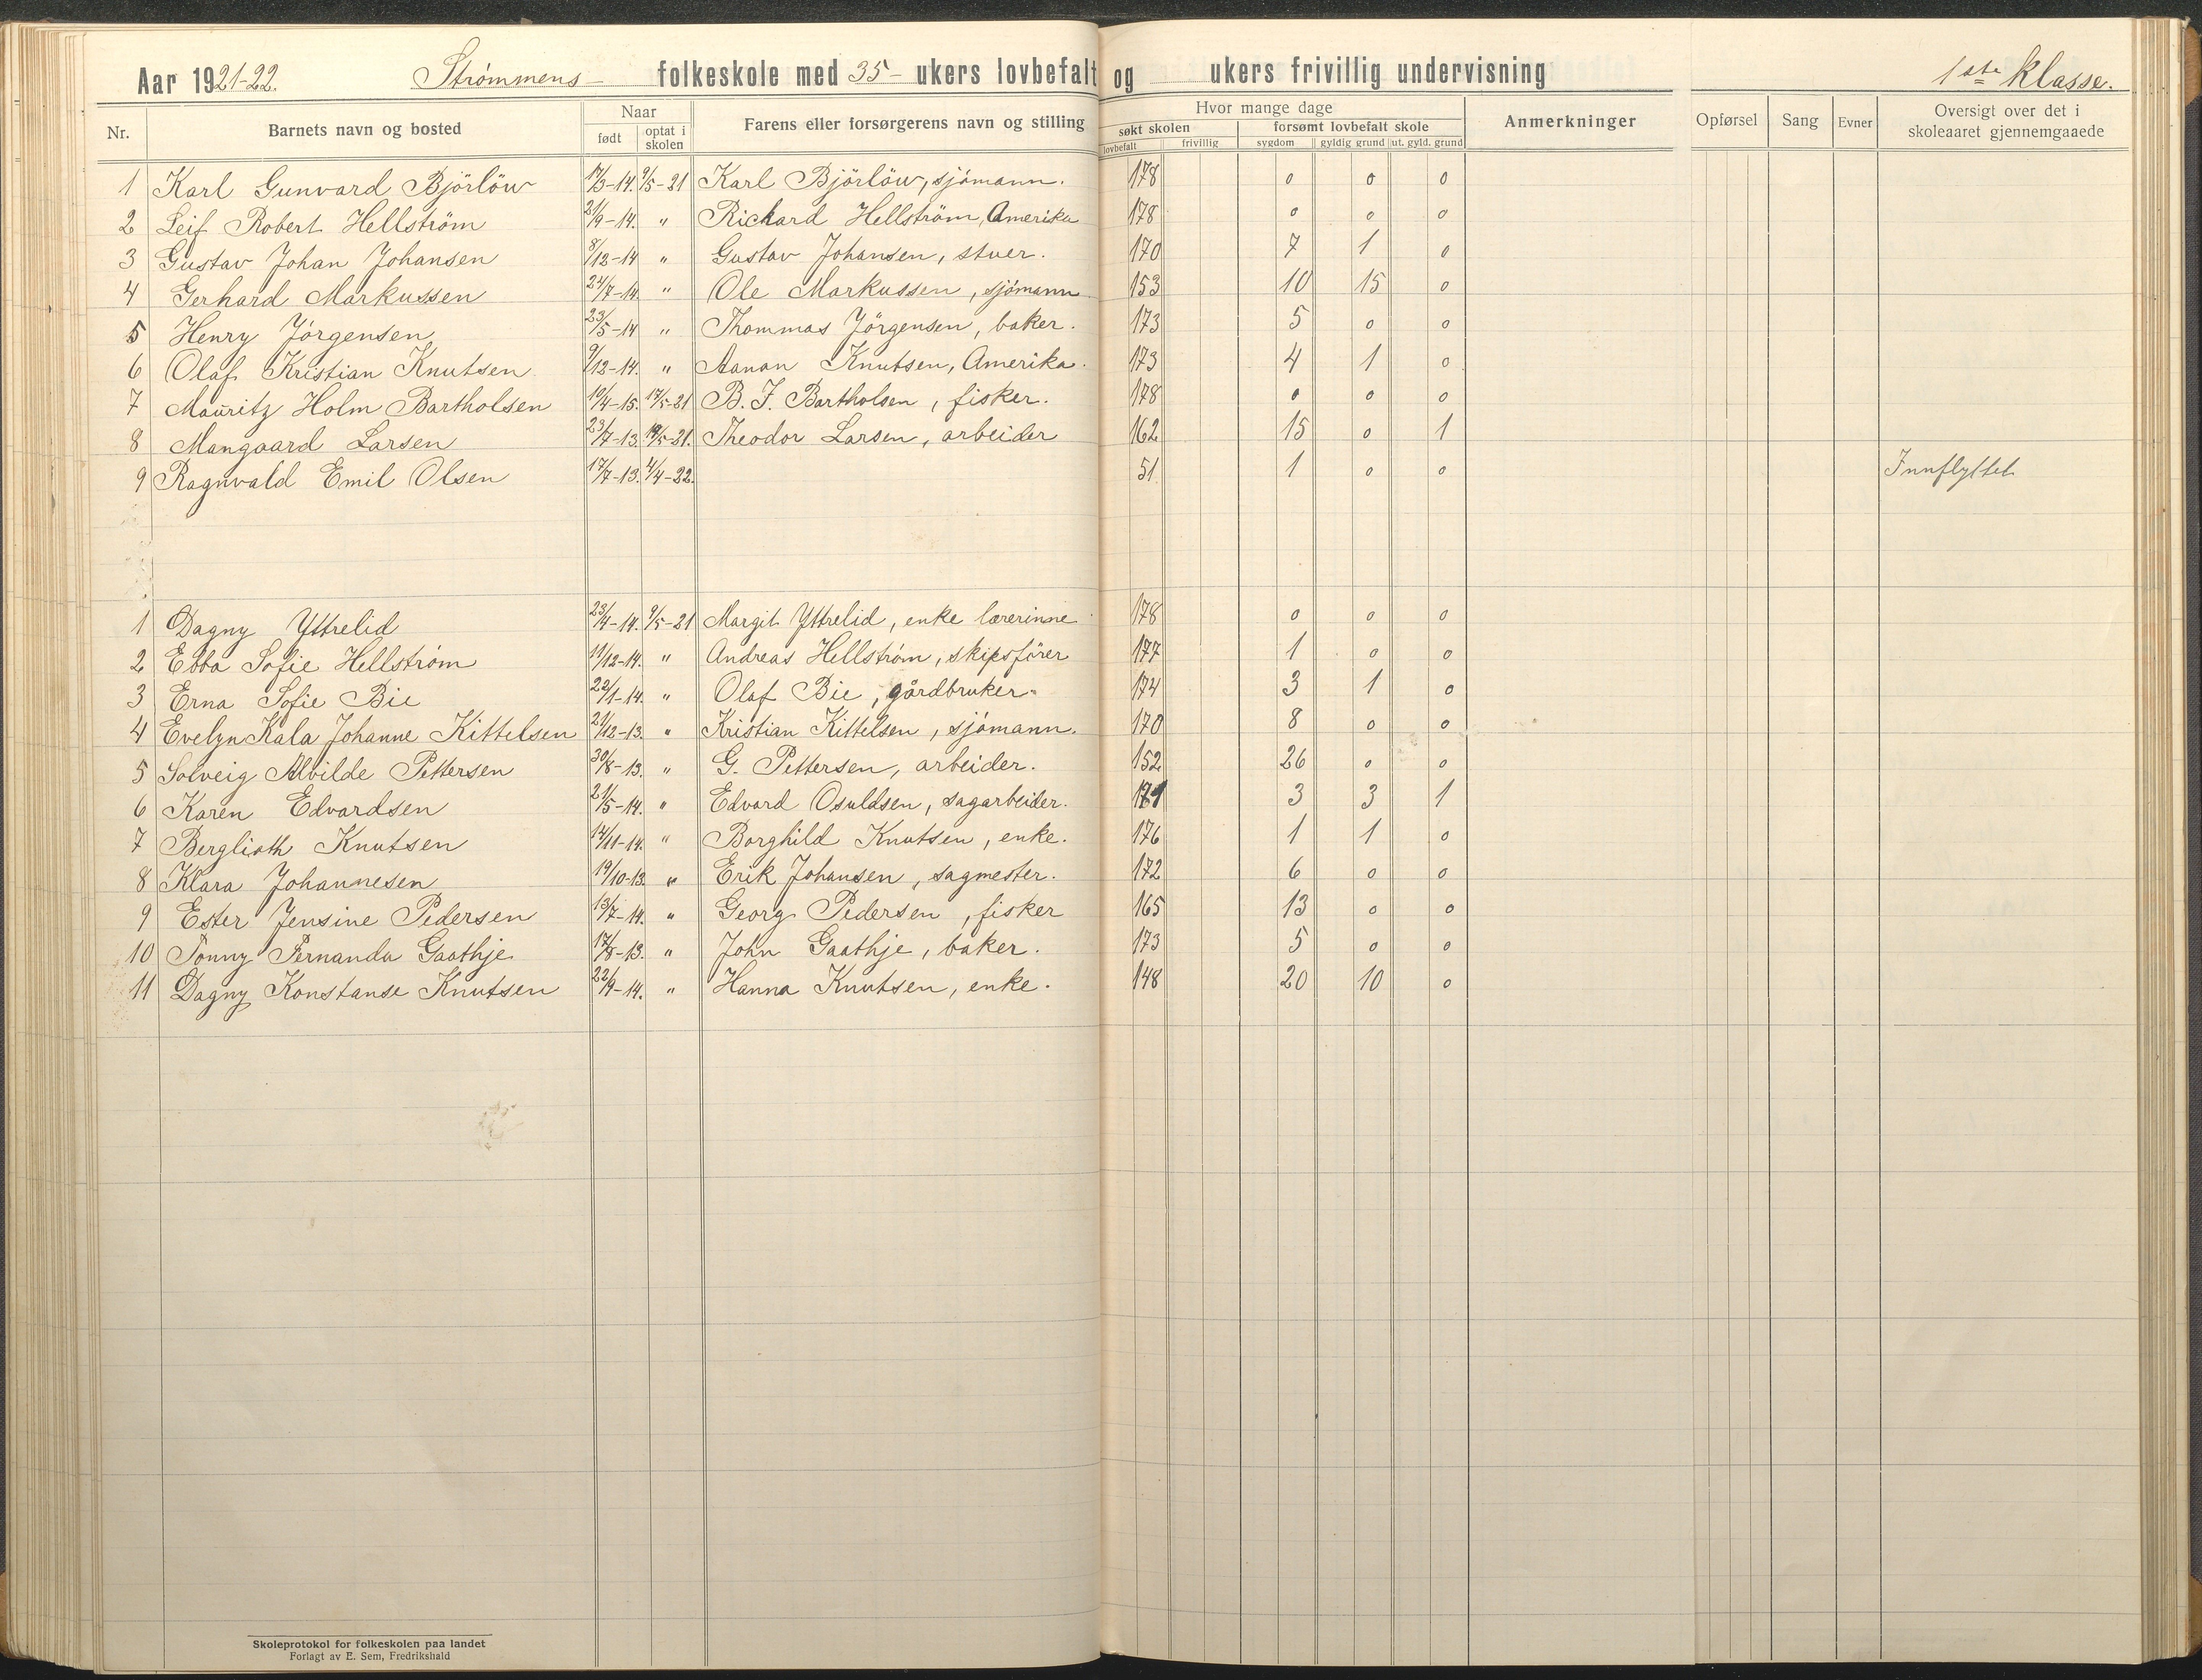 Aar 1921-22. Strömmens- folkeskole med 35- ukers lovbefalt og ukers frivillig undervisning 1ste klasse.
Nr. Barnets navn og bosted Naar Farens eller forsørgerens navn og stilling Hvor mange dage Anmerkninger Opførsel Sang Evner Oversigt over det i skoleaaret gjennemgaaede
født optat i skolen søkt skolen forsømt lovbefalt skole
lovbefalt frivillig sygdom gyldig grund ut. gyld. grund
1 Karl Gunvard Björlöw 17/3-14. 9/5-21 Karl Björlöw, sjömann. 178 0 0 0
2 Leif Robert Hellström 21/9-14. " Richard Hellström, Amerika 178 0 0 0
3 Gustav Johan Johansen 8/12-14 " Gustav Johansen, stuer. 170 7 1 0
4 Gerhard Markussen 24/7-14. " Ole Markussen, sjömann 153 10 15 0
5 Henry Jörgensen 23/5-14 " Thommas Jörgensen, baker. 173 5 0 0
6 Olaf Kristian Knutsen 9/12-14. " Aanon Knutsen, Amerika. 173 4 1 0
7 Mauritz Holm Bartholsen 10/4-15. 17/5-21 B. J. Bartholsen, fisker. 178 0 0 0
8 Mangaard Larsen 23/7-13. 19/5-21. Theodor Larsen, arbeider 162 15 0 1
9 Ragnvald Emil Olsen 17/7-13. 4/4-22. 51 1 0 0 Innflyttet
1 Dagny Yttrelid 23/4-14. 9/5-21 Margit Yttrelid, enke lærerinne 178 0 0 0
2 Ebba Sofie Hellström 11/12-14. " Andreas Hellström, skipsförer 177 1 0 0
3 Erna Sofie Bie 22/1-14. " Olaf Bie, gårdbruker. 174 3 1 0
4 Evelyn Kala Johanne Kittelsen 21/12-13. " Kristian Kittelsen, sjömann. 170 8 0 0
5 Solveig Alvilde Pettersen 30/8-13. " G. Pettersen, arbeider. 152 26 0 0
6 Karen Edvardsen 21/5-14. " Edvard Osuldsen, sagarbeider. 171 3 3 1
7 Berglioth Knutsen 14/11-14. " Borghild Knutsen, enke. 176 1 1 0
8 Klara Johannesen 19/10-13. " Erik Johansen, sagmester. 172 6 0 0
9 Ester Jensine Pedersen 13/7-14. " Georg Pedersen, fisker 165 13 0 0
10 Tonny Fernanda Gaathje 17/8-13. " John Gaathje, baker. 173 5 0 0
11 Dagny Konstanse Knutsen 22/9-14. " Hanna Knutsen, enke. 148 20 10 0
Skoleprotokol for folkeskolen paa landet
Forlagt av E. Sem, Fredrikshald